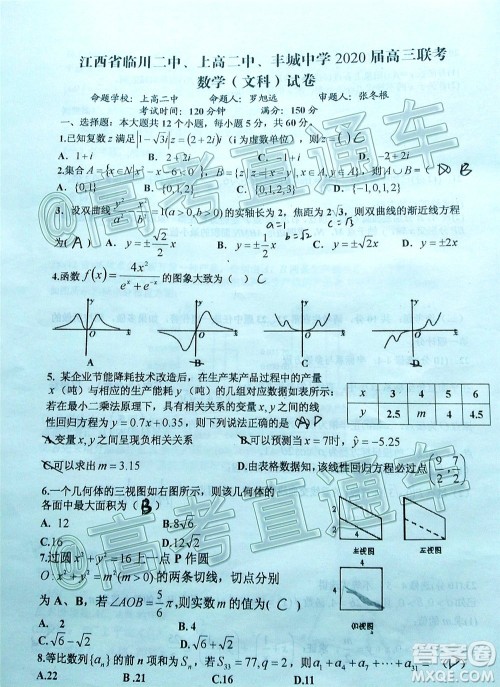 江西省临川二中、上高二中、丰城中学 2020 届高三联考
数学（文科）试卷
命题学校：上高二中 命题人：罗旭远 审题人：张冬根
考试时间：120分钟 满分：150分
一、选择题：本大题共12个小题，每小题5分，共60分。
1.已知复数 z 满足|1-√3i|z=2+2i（i为虚数单位），则 z=( ) C
A. 1-i B. 2-2i C. 1+i D. 2+2i
则 A∪B=( ) B
A. {0,1} B. {0,1,2} D. {-1,0,1,2}
3. 设双曲线 x²/a² - y²/b² =1(a>b>0)的实轴长为2，焦距为2√3，则双曲线的渐近线方程
a=1 b=√2 c=√3
为( A ) A. y=±√2x B. y=±1/2x C. y=±√2/2x D. y=±2x
4.函数 f(x)=4x²/(eˣ+e⁻ˣ) 的图象大致为（ ）C
y y y y
O x O x O x O x
A B C D
5. 某企业节能降耗技术改造后，在生产某产品过程中的产量
x（吨）与相应的生产能耗 y（吨）的几组对应数据如表所示：
若在最小二乘法原理下，给出表中数据的线
性回归方程为 y=0.7x+0.35，则下列说法正确的是
x 3 4 5 6
y 2.5 m 4 4.5
A.变量 x,y 之间呈现负相关关系 B.可以预测，当 x=7时，ŷ=-5.25
C.可以求出 m=3.15 D.由表格数据知，该线性回归直线必过点(9/2,7/2)
6.一个几何体的三视图如右图所示，则该几何体的
各面中最大面积为( B )
A. 12 B.8√6
C.16 D.16√2
主视图 左视图
俯视图
7.过圆 x²+y²=16 上一点 P 作圆
O:x²+y²=m²(m>0)的两条切线，切点分别
为 A、B，若∠AOB=5/6π，则实数 m 的值为( )
C.√6-√2 D.√6+√2
8.等比数列{aₙ}的前 n 项和为 Sₙ，若 S₃₃=77,q=2，则 a₁+a₄+a₇+⋯+a₃₁=( D )
A.22 C.16 D.11